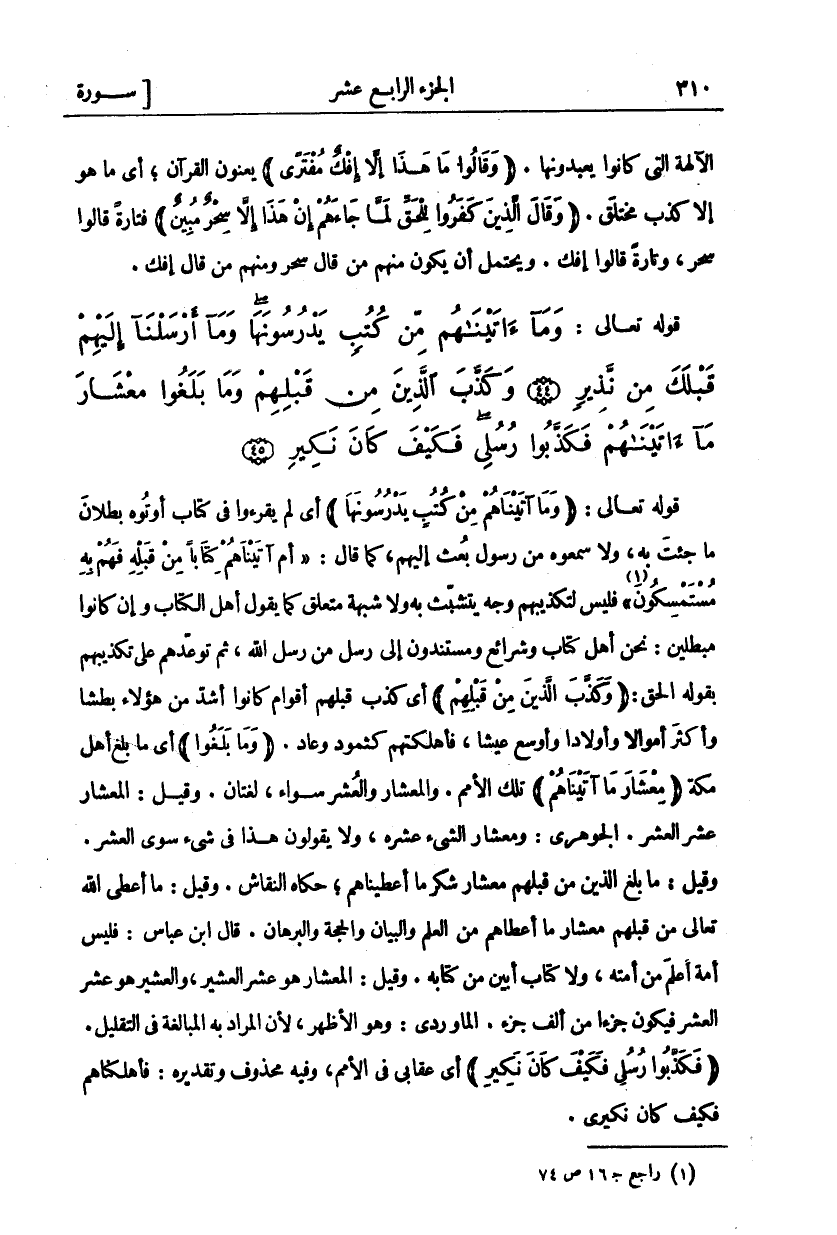 ٣١٠ الجزء الرابع عشر [ ســـورة
الآلهة التى كانوا يعبدونها . ﴿ وَقَالُوا مَا هَـذَا إِلَّا إِفْكٌ مُفْتَرًى ﴾ يعنون القرآن ؛ أى ما هو
إلا كذب مختلق . ﴿ وَقَالَ الَّذِينَ كَفَرُوا لِلْحَقِّ لَمَّا جَاءَهُمْ إِنْ هَذَا إِلَّا سِحْرٌ مُبِينٌ ﴾ فتارةً قالوا
سحر ، وتارةً قالوا إفك . ويحتمل أن يكون منهم من قال سحر ومنهم من قال إفك .
قوله تعـالى : وَمَآ ءَاتَيْنَـٰهُم مِّن كُتُبٍ يَدْرُسُونَهَاۖ وَمَآ أَرْسَلْنَآ إِلَيْهِمْ
قَبْلَكَ مِن نَّذِيرٍ ﴿٤٤﴾ وَكَذَّبَ ٱلَّذِينَ مِن قَبْلِهِمْ وَمَا بَلَغُوا مِعْشَـارَ
مَآ ءَاتَيْنَـٰهُمْ فَكَذَّبُوا رُسُلِىۖ فَكَيْفَ كَانَ نَكِيرِ ﴿٤٥﴾
قوله تعـالى : ﴿ وَمَا آتَيْنَاهُمْ مِنْ كُتُبٍ يَدْرُسُونَهَا ﴾ أى لم يقرءوا فى كتاب أوتُوه بطلانَ
ما جئتَ به ، ولا سمعوه من رسول بُعث إليهم، كما قال : « أم آتَيْنَاهُمْ كِتَاباً مِنْ قَبْلِهِ فَهُمْ بِهِ
مُسْتَمْسِكُونَ(١)» فليس لتكذيبهم وجه يتشبّث به ولا شبهة متعلق كما يقول أهل الكتاب و إن كانوا
مبطلين : نحن أهل كتاب وشرائع ومستندون إلى رسل من رسل الله ، ثم توعّدهم على تكذيبهم
بقوله الحق : ﴿ وَكَذَّبَ الَّذِينَ مِنْ قَبْلِهِمْ ﴾ أى كذب قبلهم أقوام كانوا أشدّ من هؤلاء بطشا
وأكثرَ أموالا وأولادا وأوسع عيشا ، فأهلكتهم كثمود وعاد . ﴿ وَمَا بَلَغُوا ﴾ أى ما بلغ أهل
مكة ﴿ مِعْشَارَ مَا آتَيْنَاهُمْ ﴾ تلك الأمم . والمعشار والعُشر سـواء ، لغتان . وقيـل : المعشار
عشر العشر . الجوهرى : ومعشار الشىء عشره ، ولا يقولون هـذا فى شىء سوى العشر .
وقيل : ما بلغ الذين من قبلهم معشار شكر ما أعطيناهم ؛ حكاه النقاش . وقيل : ما أعطى الله
تعالى من قبلهم معشار ما أعطاهم من العلم والبيان والحجة والبرهان . قال ابن عباس : فليس
أمة أعلمَ من أمته ، ولا كتاب أبين من كتابه . وقيل : المعشار هو عشر العشير ، والعشير هو عشر
العشر فيكون جزءا من ألف جزء . الماوردى : وهو الأظهر ، لأن المراد به المبالغة فى التقليل .
﴿ فَكَذَّبُوا رُسُلِى فَكَيْفَ كَانَ نَكِيرِ ﴾ أى عقابى فى الأمم، وفيه محذوف وتقديره : فأهلكناهم
فكيف كان نكيرى .
(١) راجع جـ ١٦ ص ٧٤